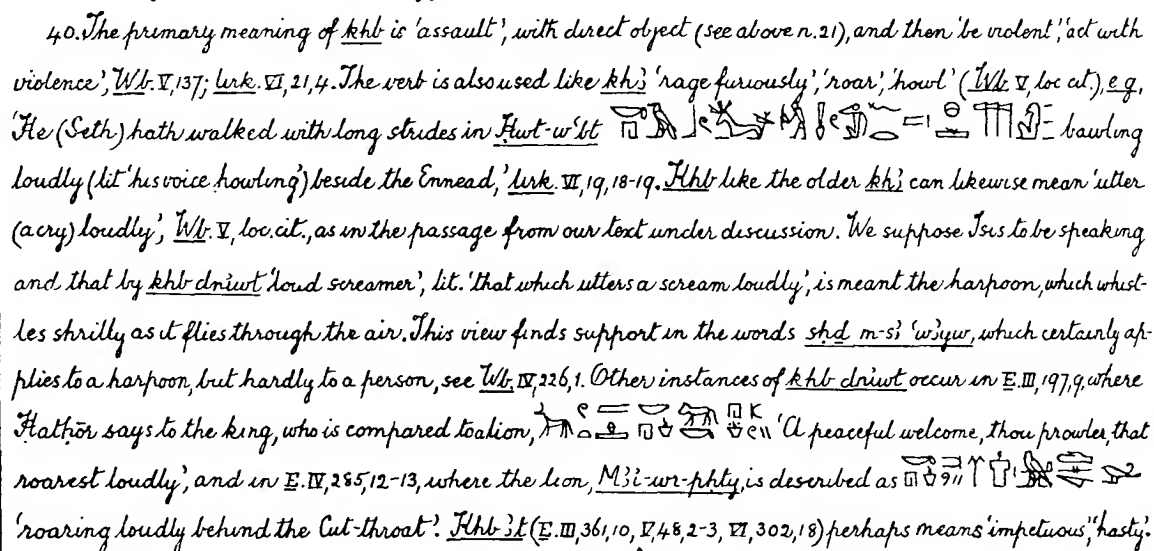 40. The primary meaning of khb is 'assault', with direct object (see above n. 21), and then 'be violent', 'act with
violence', Wb. V, 137; Urk. VI, 21, 4. The verb is also used like khꜣ 'rage furiously', 'roar', 'howl' (Wb. V, loc cit.), e.g,
'He (Seth) hath walked with long strides in Ḥwt-wꜥbt bawling
loudly (lit 'his voice howling') beside the Ennead,' Urk. VI, 19, 18-19. Khb like the older khꜣ can likewise mean 'utter
(a cry) loudly', Wb. V, loc. cit., as in the passage from our text under discussion. We suppose Isis to be speaking
and that by khb dniwt 'loud screamer', lit. 'that which utters a scream loudly', is meant the harpoon, which whist-
les shrilly as it flies through the air. This view finds support in the words which certainly ap-
plies to a harpoon, but hardly to a person, see Wb. IV, 226, 1. Other instances of khb dniwt occur in E. III, 197, 9, where
Ḥatḥōr says to the king, who is compared to a lion, 'A peaceful welcome, thou prowler, that
roarest loudly', and in E. IV, 285, 12-13, where the lion, Mꜣi-wr-pḥty, is described as
'roaring loudly behind the Cut-throat'. Khb ꜣt (E. III, 361, 10, V, 48, 2-3, VI, 302, 18) perhaps means 'impetuous', 'hasty'.